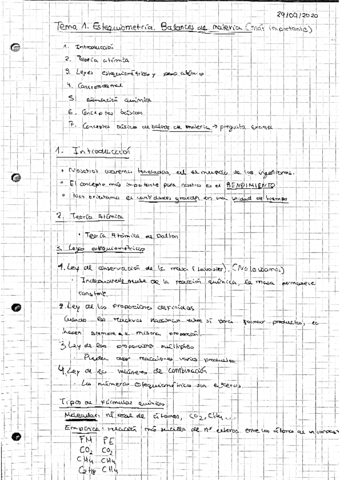 29/09/2020
Tema 1. Estequiometría. Balances de materia (más importante)
1. Introducción
2. Teoría atómica
3. Leyes estequiométricas y peso atómico
4.
5. química
6. Conceptos básicos
7. Conceptos básicos de balance de materia → pregunta examen
1. Introducción
• Nosotros en el mundo de los ingenieros.
• El concepto más importante para nosotros es el RENDIMIENTO
• Nos
2. Teoría atómica
• Teoría Atómica de Dalton
3. Leyes estequiométricas
1. Ley de conservación de la masa (Lavoisier). (No)
• de la reacción química, la masa permanece
constante.
2. Ley de las proporciones definidas
Cuando los reactivos reaccionan entre sí para formar productos, lo
hacen siempre en la misma proporción.
3. Ley de las proporciones múltiples
• Pueden reacciones varios productos
4. Ley de los volúmenes de combinación
Los números estequiométricos son enteros.
Tipos de fórmulas químicas
Molecular: nº total de átomos, CO2, CH4...
Empírica: relación más sencilla de nº enteros entre los átomos de un compuesto
FM FE
CO2 CO2
CH4 CH4